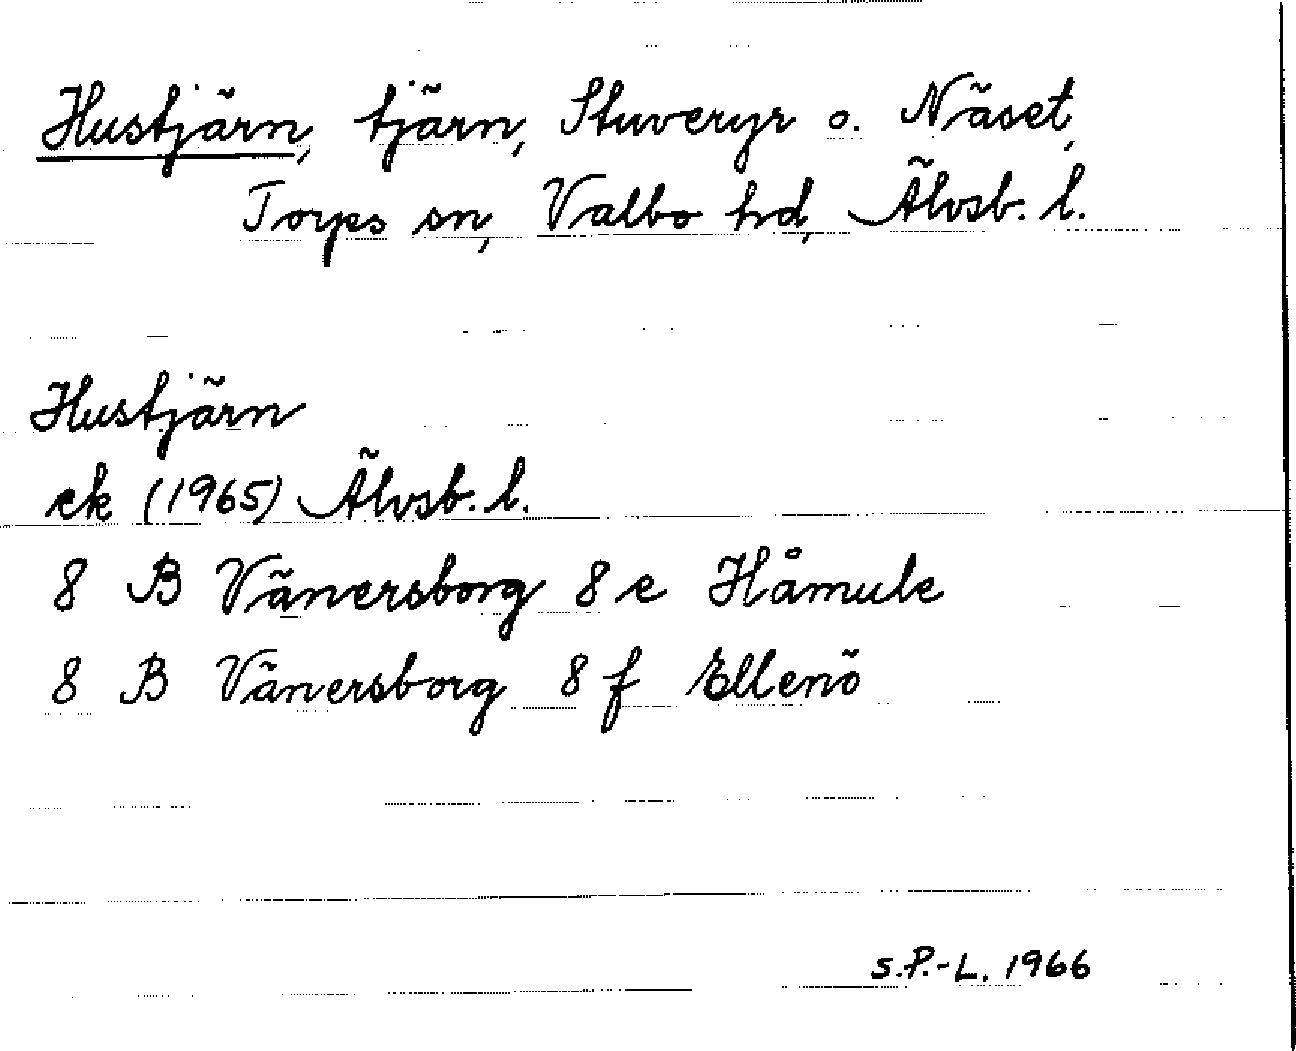 Hustjärn, tjärn, Stuveryr o. Näset,
Torps sn, Valbo hd, Älvsb. l.
Hustjärn
ek (1965) Älvsb. l.
8 B Vänersborg 8 e Håmule
8 B Vänersborg 8 f Ellenö
S.P.-L. 1966